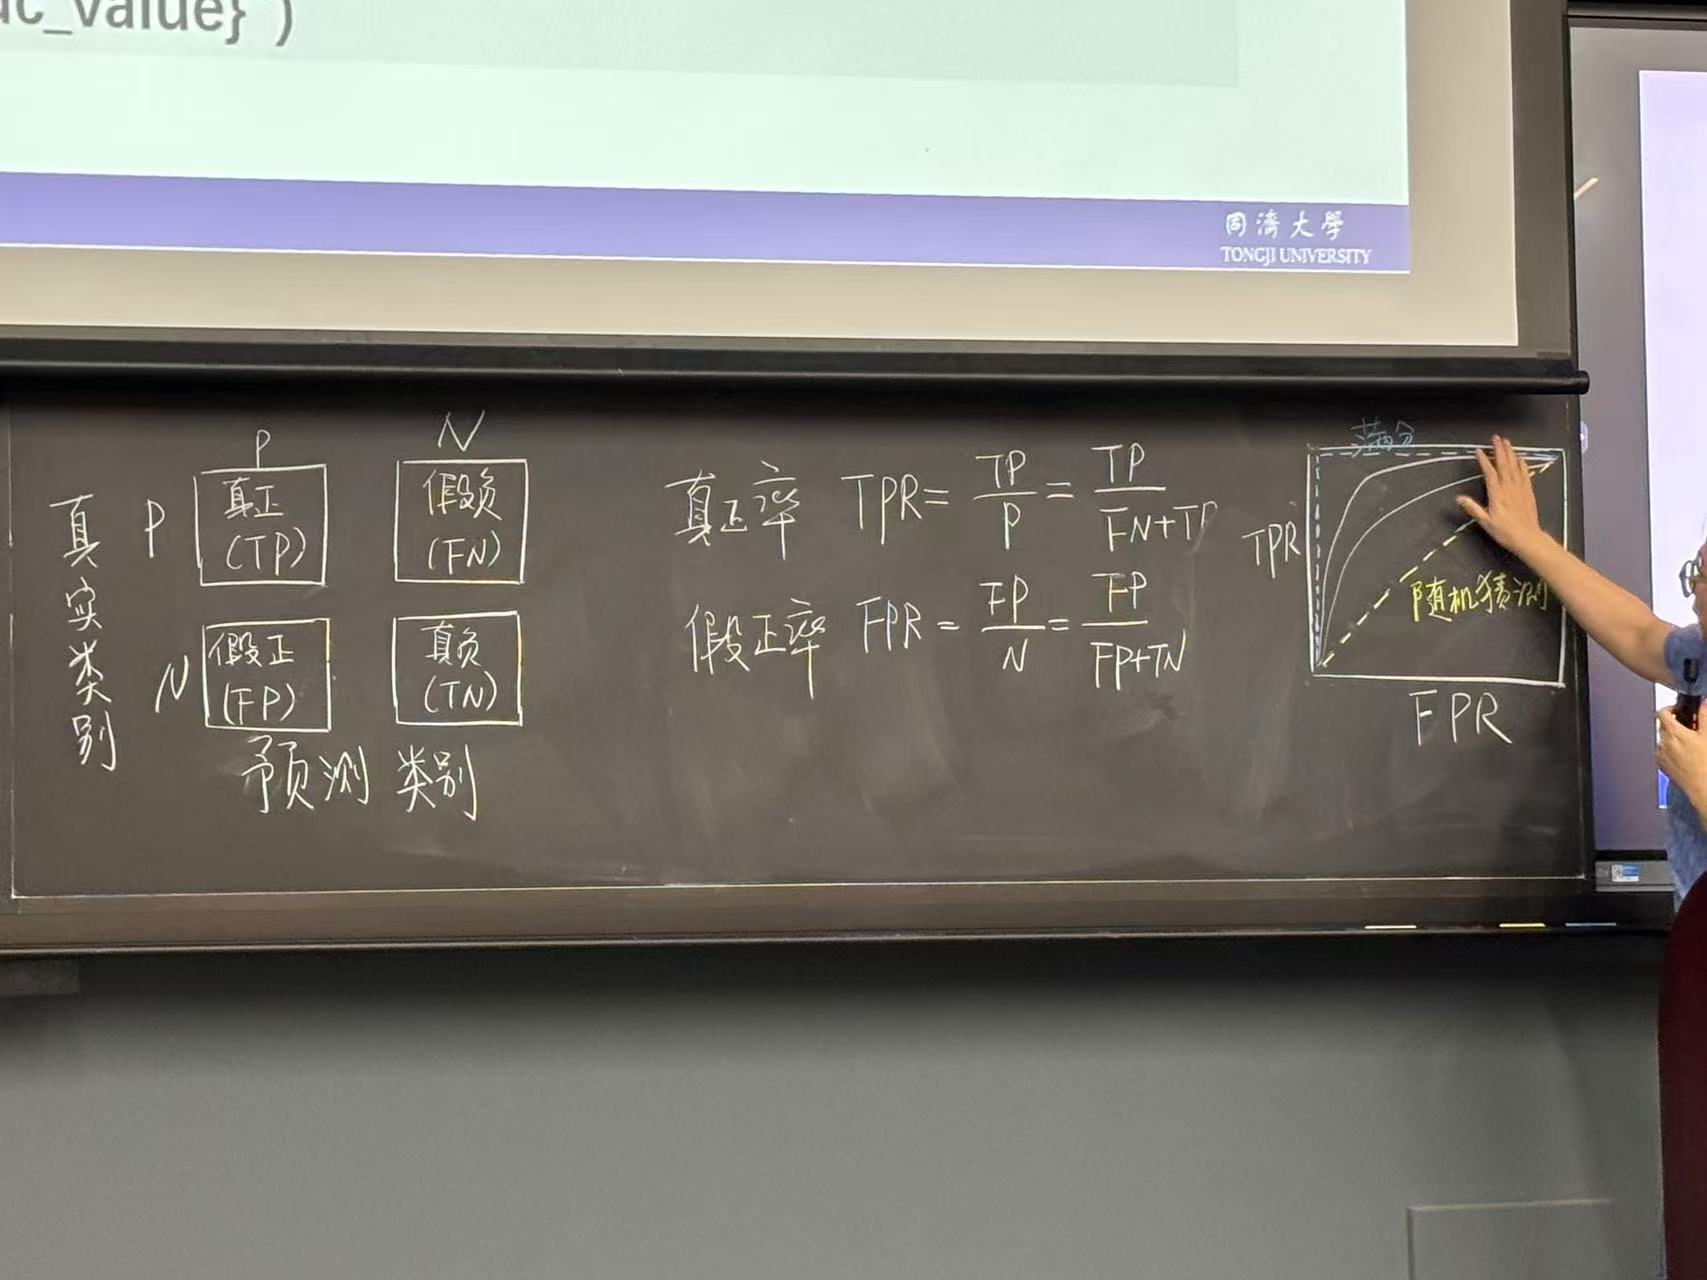 uc_value} ")
同濟大學
TONGJI UNIVERSITY
P N
真实类别
P 真正 (TP) 假负 (FN)
N 假正 (FP) 真负 (TN)
预测 类别
真正率 TPR = TP/P = TP/FN+TP
假正率 FPR = FP/N = FP/FP+TN
满分
TPR
随机猜测
FPR